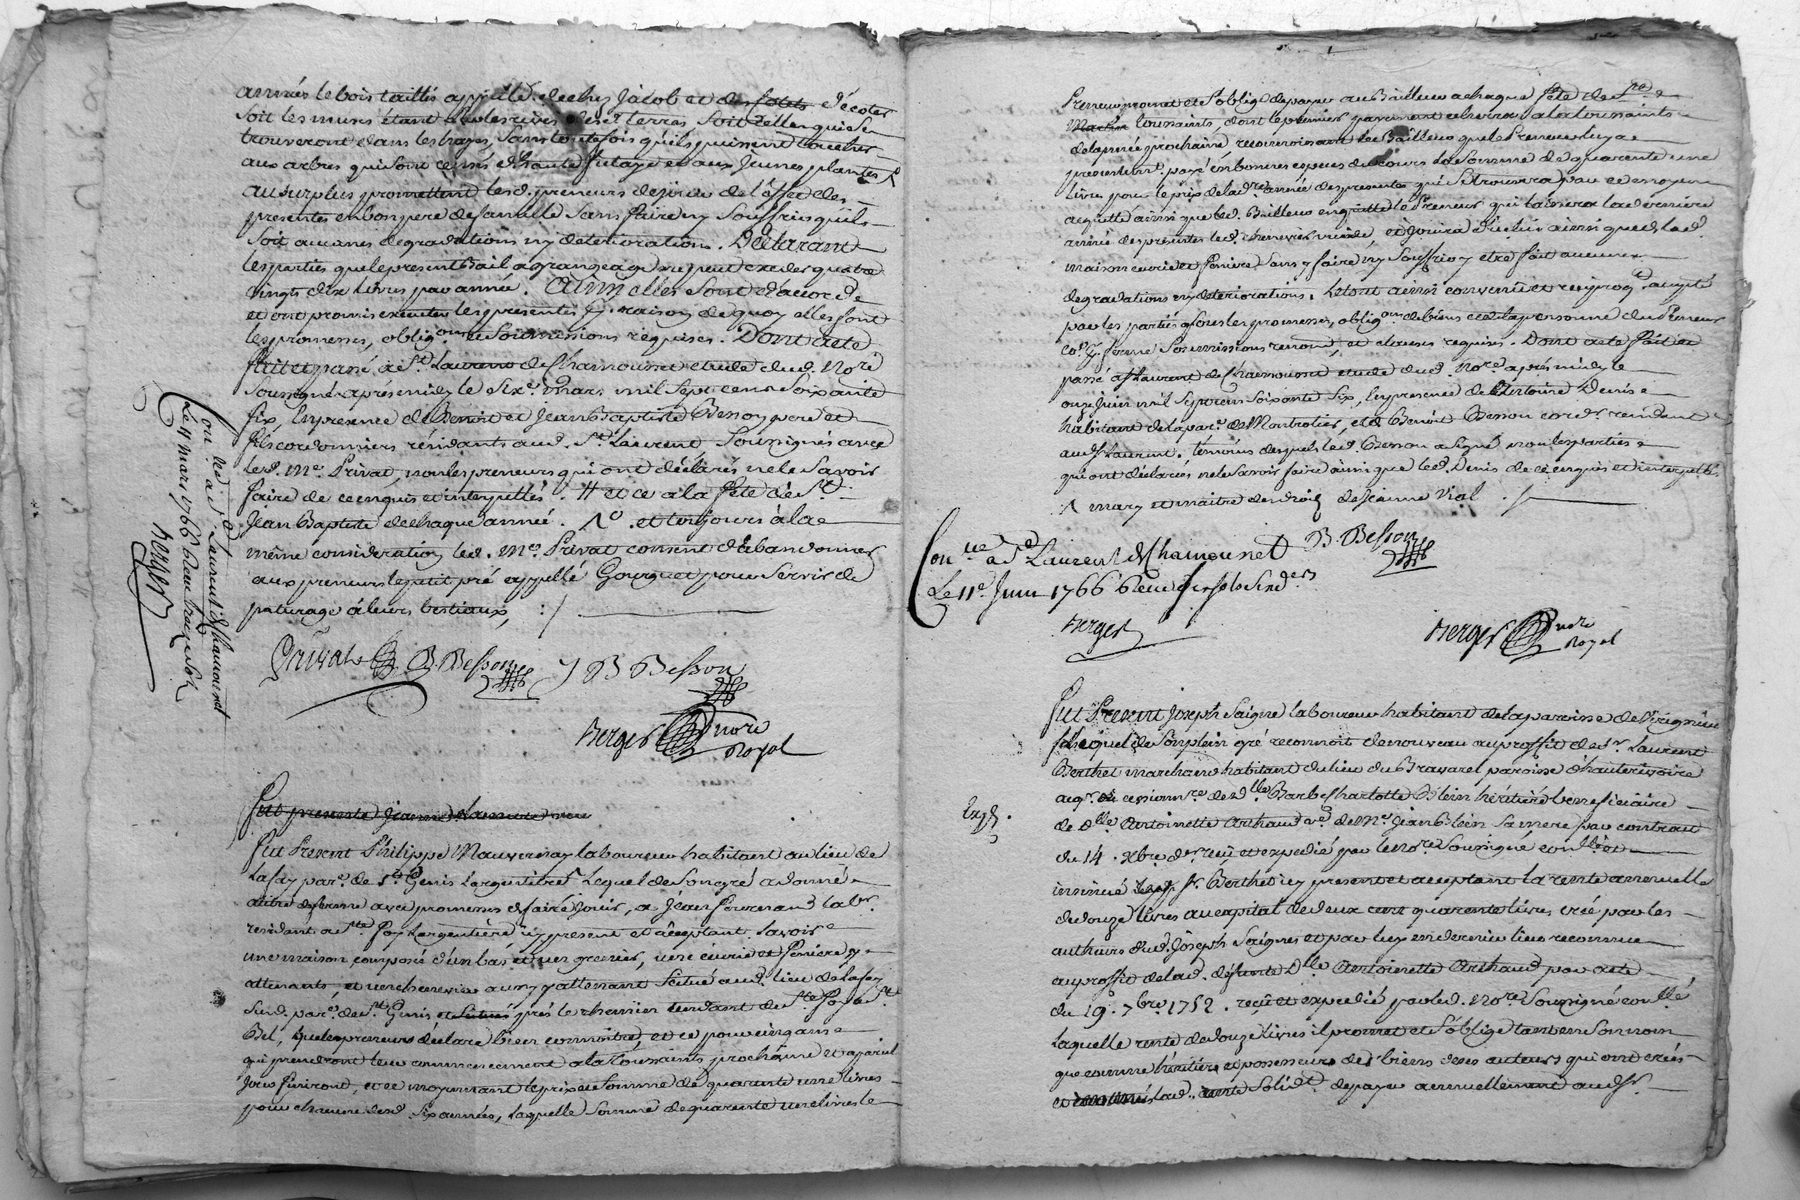 années le bois taillis appellé de chez Jacob et d'écoter
soit les mures étant aud. terres soit celles qui se
trouveront dans les hayes, sans toutefois qu'ils puissent toucher
aux arbres qui sont censés d'haute futaye et aux jeunes plantes
au surplus promettent lesd. preneurs de jouir de l'effet des
presentes en bon pere de famille sans faire ny souffrir qu'il
soit aucunes degradations ny deteriorations. Déclarant
les parties que le present Bail a grangeage ne peut exceder quatre
vingts dix livres par année. Ainsy elles sont d'accord
et ont promis executer les presentes à raison de quoy elles font
les promesses, oblig.ons et soumissions requises. Dont acte
fait et passé à St. Laurent de Chamousset etude dud. Nore.
soussigné après midy le six mars mil sept cens soixante
six, En presence de Benoit et Jean Baptiste Besson pere et
fils cordonniers résidants aud. St. Laurent soussignés avec
led. Me. Privat, non les preneurs qui ont déclarés ne le savoir
faire de ce enquis et interpellés. # et ce a la fête de St.
Jean Baptiste de chaque année. et toujours à la
même consideration led. Me. Privat consent d'abandonner
aux preneurs le petit pré appellé Gourguet pour servir de
paturage à leurs bestiaux
Privat B. Besson J B Besson
Berger nore
Royal
Con.lé a St. Laurent de Chamousset
Le 11 mars 1766
Berger
Fut presente Jeanne
Fut Present Philippe Mauvernay laboureur habitant au lieu de
Lafay par. de St. Genis Largentiere Lequel de son gré a donné
a titre de ferme avec promesses de faire jouir, a Jean labr.
résidant a Ste. Foy Largentiere icy present et acceptant, savoir
une maison composé d'un bas et un grenier, une écurie et feniere y
attenants, et une cheneviere aussy y attenant située aud. lieu de Lafay
sud. par. de St. Genis près le chemin tendant de Ste. Foy a St.
Bel, que le preneur déclare bien connoitre, et ce pour six ans
qui prendront leur commencement a la toussaints prochaine et a pareil
jour finiront, et ce moyennant le prix et somme de quarante une livres
pour chacune desd. six années, laquelle somme de quarante une livres le
Preneur promet et s'oblige de payer au Bailleur a chaque fête de
toussaints, dont le premier payement echerra a la toussaints
de l'année prochaine reconnoissant led. Bailleur que le Preneur luy a
presentem.t payé en bonnes especes de cours la somme de quarante une
livres pour le prix de la dre. année des presentes qui se trouvera par ce moyen
acquittée ainsi que led. Bailleur en quitte le Preneur qui laissera la derniere
année des presentes led. chenevier vuide, et jouira d'icelui ainsi que de lad.
maison ecurie et feniere sans y faire ny souffrir y etre fait aucunes
degradations ny deteriorations. Le tout ainsi convenu et reciproq.t accepté
par les parties sous les promesses, oblig.on de biens et de la personne du d. Preneur
soumissions renon. et clauses requises. Dont acte fait et
passé a St. Laurent de Chamousset etude dud. nore. après midy le
onze juin mil sept cens soixante six, en presence de Antoine Denis
habitant de la par. de Montrotier, et de Benoit Besson cord.r residant
aud. St. Laurent. temoins desquels led. Besson a signé non les parties
qui ont déclarées ne le savoir faire ainsi que led. Denis de ce enquis et interpellé.
mary et maitre des droits de Jeanne Vial
Con.lé a St. Laurent de Chamousset B. Besson
Le 11e. Juin 1766
Berger
Berger nore
Royal
Fut Present Joseph Saigne laboureur habitant de la paroisse de Virigneu
lequel de son plein gré reconnoit de nouveau au proffit de Sr. Laurent
Berthet marchand habitant du lieu du Bravarel paroisse d'hauterivoire
acqr. ou cessionnre. de dlle. Barbe Charlotte Blein héritiere beneficiaire
Exp.
de dlle. Antoinette Arthaud ve. de Me. Jean Blein sa mere par contrat
du 14. Xbre. dr. reçu et expedié par le nore. soussigné controllé et
insinué led. Sr. Berthet icy present et acceptant la rente annuelle
de douze livres au capital de deux cent quarante livres créé par les
autheurs dud. Joseph Saignes et par luy en dernier lieu reconnue
au proffit de lad. defunte dlle. Antoinette Arthaud par acte
du 19. 7bre. 1752. reçu et expedié par led. nore. soussigné controllé
Laquelle rente de douze livres il promet et s'oblige tant en son nom
que comme héritier et possesseur des biens de ses auteurs qui ont créés
lad. rente solid.t de payer annuellement aud. Sr.